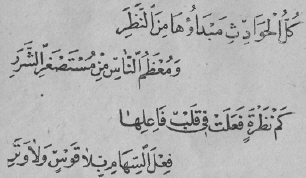 كُلُّ الْحَوَادِثِ مَبْدَاؤُهَا مِنَ النَّظَرِ
وَمُعْظَمُ النَّاسِ مِنْ مُسْتَصْغَرِ الشَّرَرِ
كَمْ نَظْرَةٍ فَعَلَتْ فِي قَلْبِ فَاعِلِهَا
فِعْلَ السِّهَامِ بِلَا قَوْسٍ وَلَا وَتَرِ